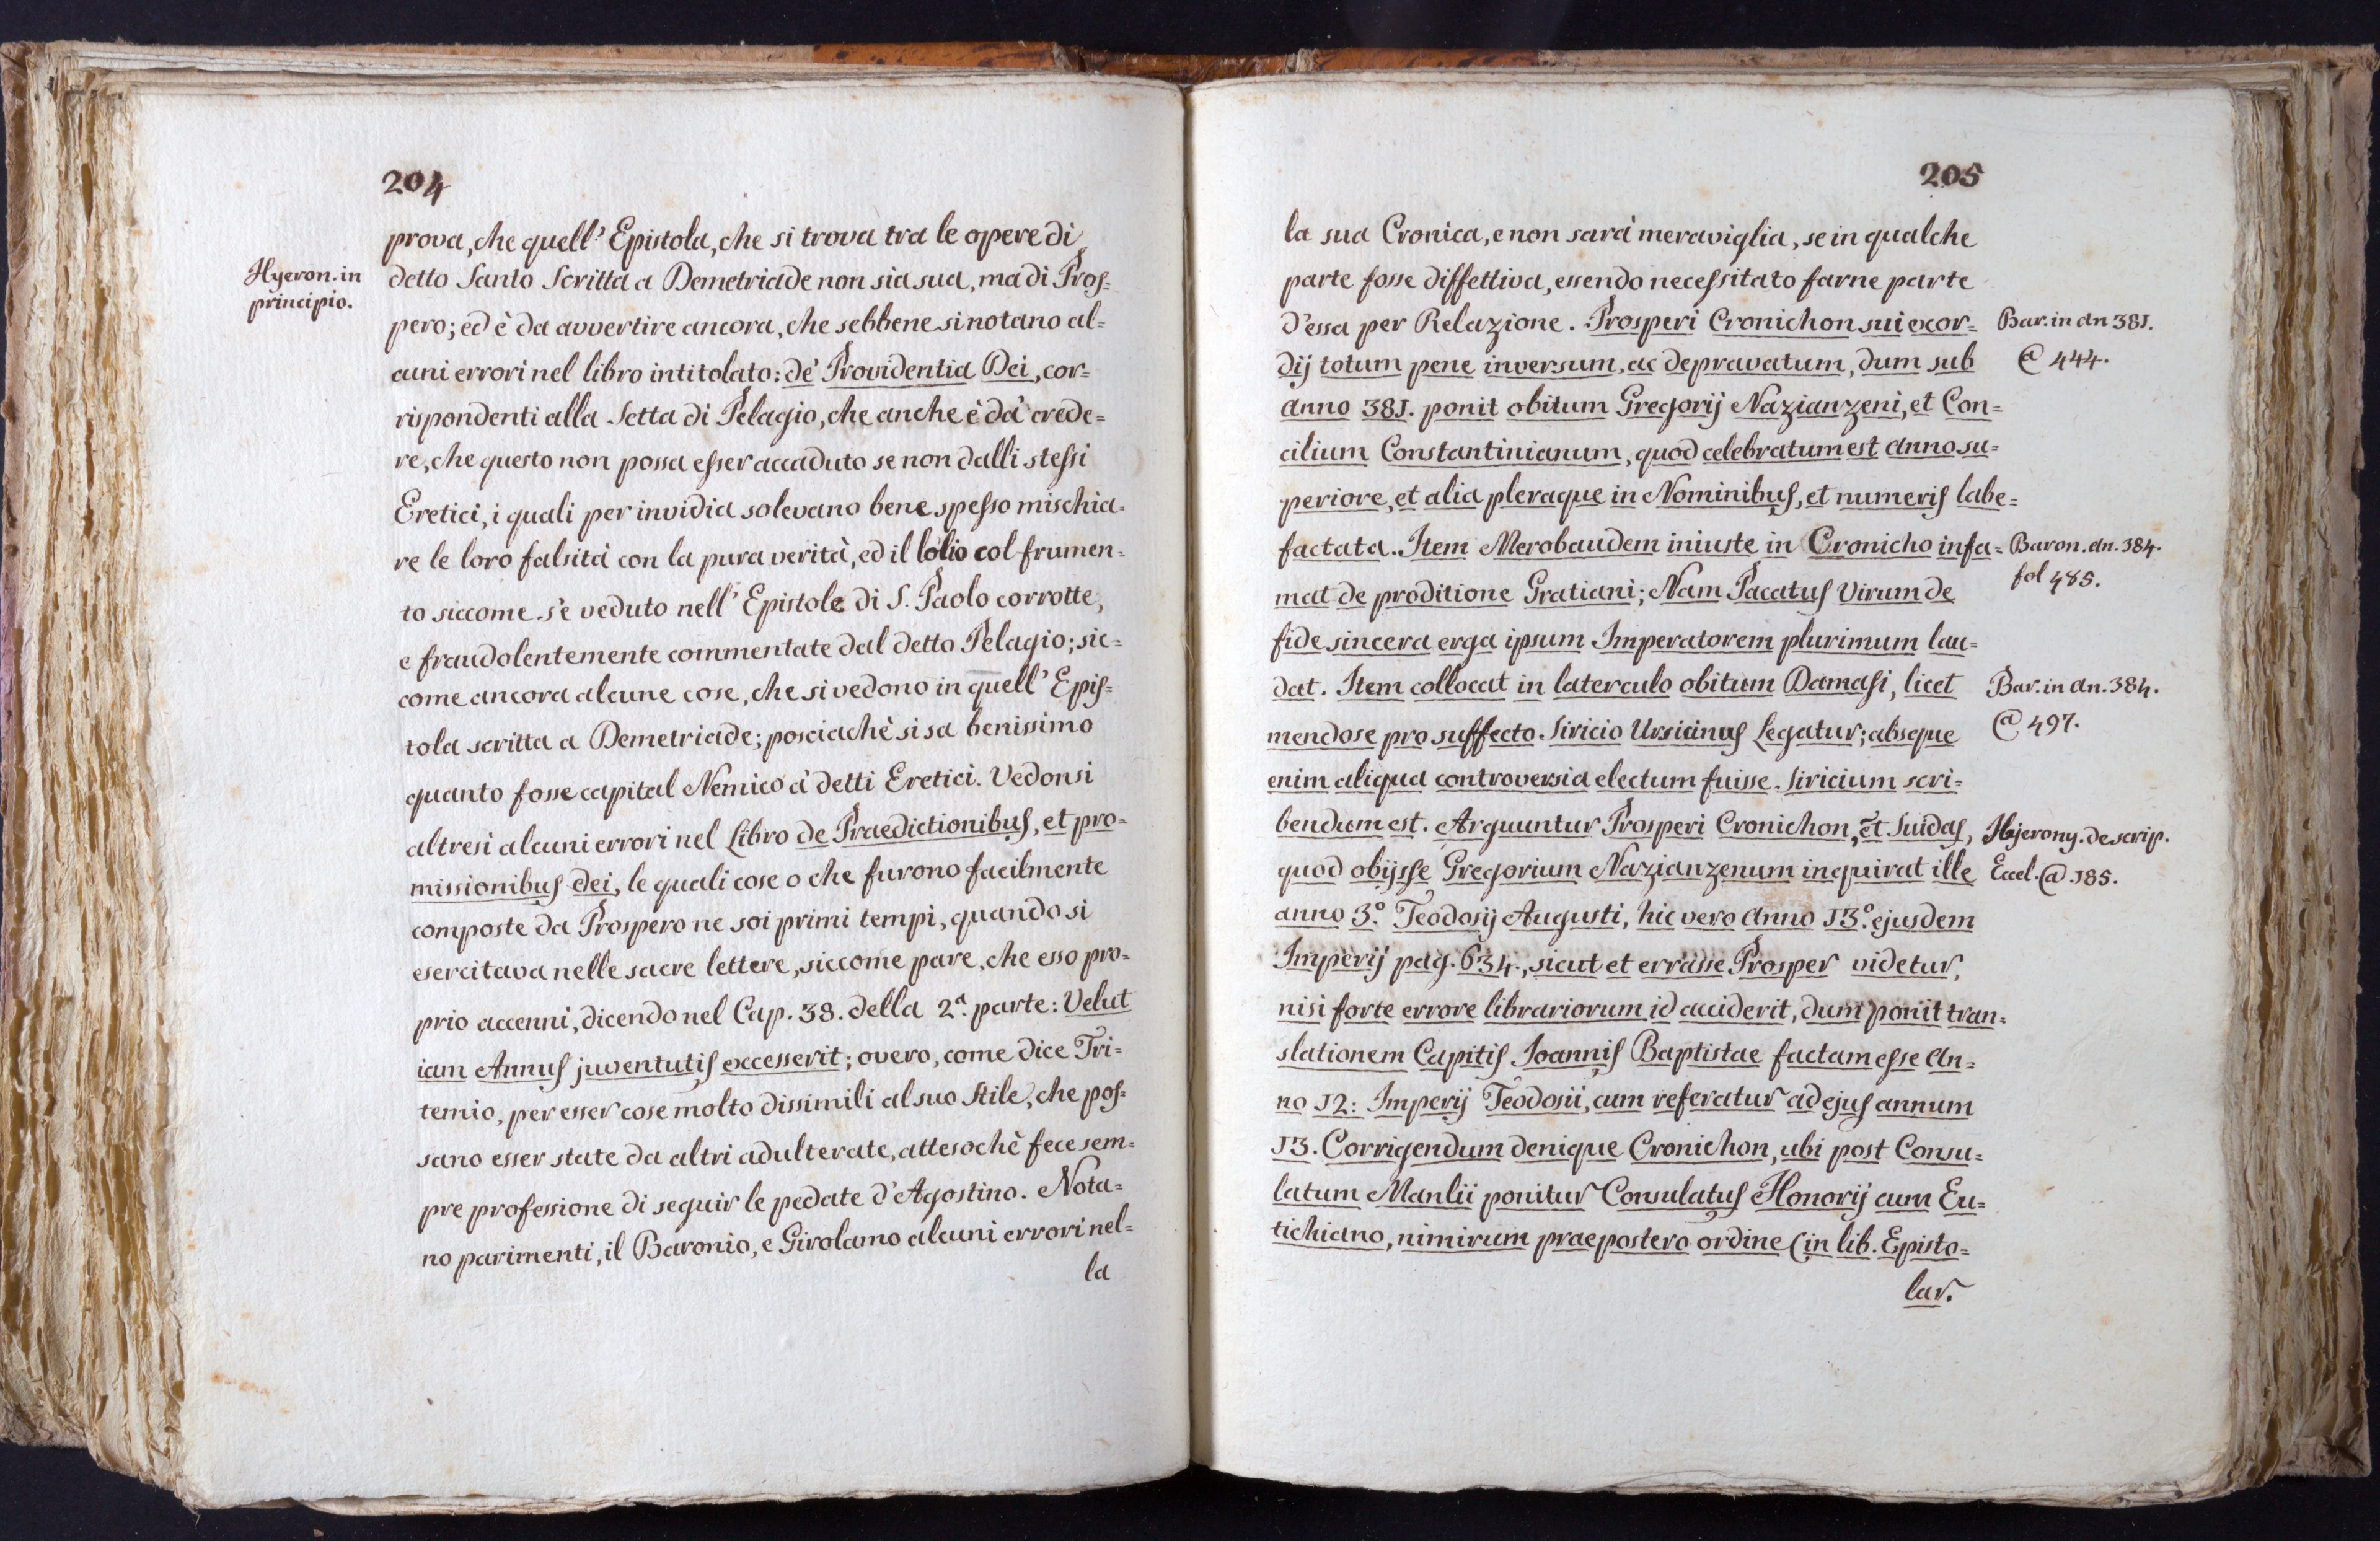 204
prova, che quell' Epistola, che si trova tra le opere di
Hyeron. in
principio.
detto Santo Scritta a Demetriade non sia sua, ma di Pros=
pero; ed è da avvertire ancora, che sebbene si notano al=
cuni errori nel libro intitolato: de' Providentia Dei, cor=
rispondenti alla Setta di Pelagio, che anche è da' crede=
re, che questo non possa esser accaduto se non dalli stessi
Eretici, i quali per invidia solevano bene spesso mischia=
re le loro falsità con la pura verità, ed il lolio col frumen=
to siccome s'è veduto nell' Epistole di S. Paolo corrotte,
e fraudolentemente commentate dal detto Pelagio; sic=
come ancora alcune cose, che si vedono in quell' Epis=
tola scritta a Demetriade; posciachè si sa benissimo
quanto fosse capital Nemico a' detti Eretici. Vedonsi
altresi alcuni errori nel Libro de Praedictionibus, et pro=
missionibus dei, le quali cose o che furono facilmente
composte da Prospero ne soi primi tempi, quando si
esercitava nelle sacre lettere, siccome pare, che esso pro=
prio accenni, dicendo nel Cap. 38. della 2.a parte: Velut
iam Annus juventutis excesserit; overo, come dice Tri=
temio, per esser cose molto dissimili al suo Stile, che pos=
sano esser state da altri adulterate, attesochè fece sem=
pre professione di seguir le pedate d'Agostino. Nota=
no parimenti, il Baronio, e Girolamo alcuni errori nel=
la
205
la sua Cronica, e non sarà meraviglia, se in qualche
parte fosse diffettiva, essendo necessitato farne parte
d'essa per Relazione. Prosperi Cronichon sui exor=
Bar. in an 381.
@ 444.
dij totum pene inversum, ac depravatum, dum sub
anno 381. ponit obitum Gregorij Nazianzeni, et Con=
cilium Constantinianum, quod celebratum est anno su=
periore, et alia pleraque in Nominibus, et numeris labe=
factata. Item Merobaudem iniuste in Cronicho infa=
Baron. an. 384.
fol 485.
mat de proditione Gratiani; Nam Pacatus Virum de
fide sincera erga ipsum Imperatorem plurimum lau=
dat. Item collocat in laterculo obitum Damasi, licet
Bar. in an. 384.
@ 497.
mendose pro suffecto Siricio Ursicinus Legatur; absque
enim aliqua controversia electum fuisse Siricium scri=
bendum est. Arguuntur Prosperi Cronichon, et Suidas,
Hyerony. de scrip.
Eccl. @ 185.
quod obijsse Gregorium Nazianzenum inquirat ille
anno 3.o Teodosij Augusti, hic vero Anno 13.o ejusdem
Imperij pag. 634., sicut et errasse Prosper videtur,
nisi forte errore librariorum id acciderit, dum ponit tran=
slationem Capitis Joannis Baptistae factam esse An=
no 12: Imperij Teodosii, cum referatur ad ejus annum
13. Corrigendum denique Cronichon, ubi post Consu=
latum Manlii ponitur Consulatus Honorij cum Eu=
tichiano, nimirum praepostero ordine (in lib. Episto=
lar.